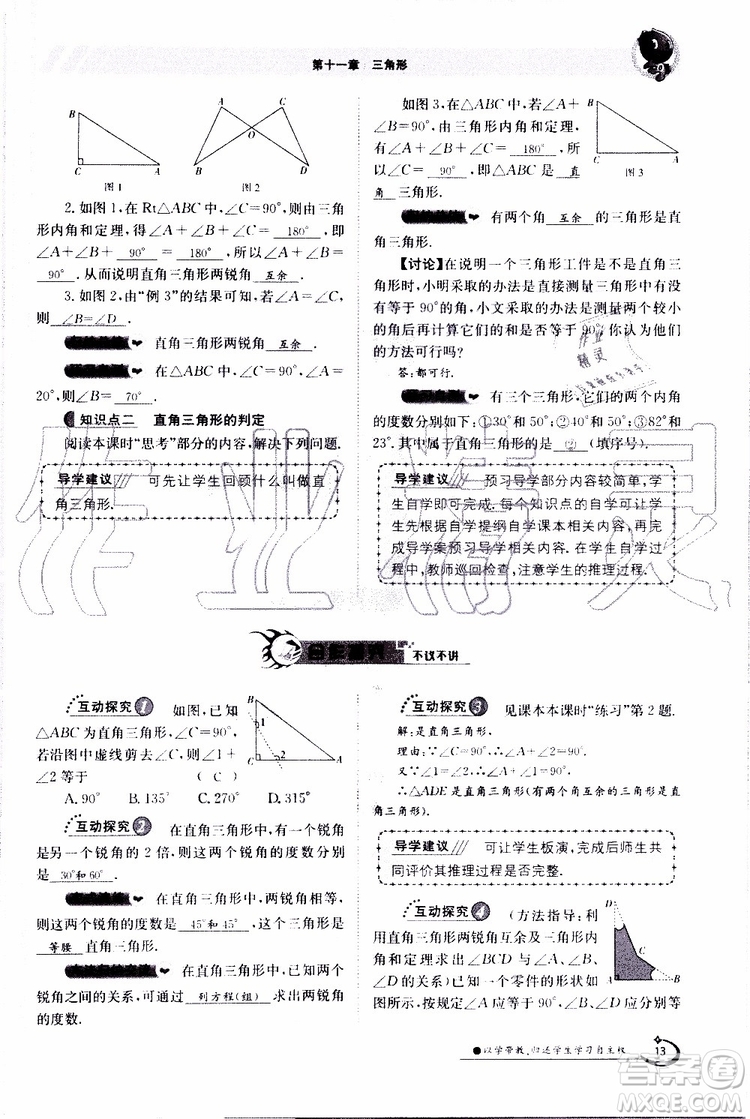 第十一章 三角形
B
C
A
图1
A
C
O
B
D
图2
2. 如图1,在Rt△ABC中,∠C=90°,由三角
形内角和定理,得∠A+∠B+∠C= 180° ,即
∠A+∠B+ 90° = 180° ,所以∠A+∠B=
90° .从而说明直角三角形两锐角 互余 .
3. 如图2,由“例3”的结果可知,若∠A=∠C,
则 ∠B=∠D .
直角三角形两锐角 互余 .
在△ABC中,∠C=90°,∠A=
20°,则∠B= 70° .
知识点二 直角三角形的判定
阅读本课时“思考”部分的内容,解决下列问题.
导学建议 可先让学生回顾什么叫做直
角三角形.
如图3,在△ABC中,若∠A+
∠B=90°,由三角形内角和定理,
有∠A+∠B+∠C= 180° ,所以
∠C= 90° ,即△ABC是 直
角 三角形.
B
C
A
图3
有两个角 互余 的三角形是直
角三角形.
【讨论】在说明一个三角形工件是不是直角三
角形时,小明采取的办法是直接测量三角形中
有没有等于90°的角,小文采取的办法是测量两个较小
的角后再计算它们的和是否等于90°.你认为他们
的方法可行吗?
答:都可行.
有三个三角形,它们的两个内角
的度数分别如下:①30°和50°;②40°和50°;③82°和
23°.其中属于直角三角形的是 ② (填序号).
导学建议 预习导学部分内容较简单,学
生自学即可完成.每个知识点的自学可让学
生先根据自学提纲自学课本相关内容,再完
成导学案预习导学内容.在学生自学过
程中,教师巡回检查,注意学生的推理过程.
不议不讲
互动探究1 如图,已知
△ABC为直角三角形,∠C=90°,
若沿图中虚线剪去∠C,则∠1+
∠2等于 ( C )
A. 90° B. 135° C. 270° D. 315°
B
1
2
C
A
互动探究2 在直角三角形中,有一个锐角
是另一个锐角的2倍,则这两个锐角的度数分别
是 30°和60° .
在直角三角形中,若两锐角相等,
则这两个锐角的度数是 45°和45° ,这个三角形
是 等腰 直角三角形.
在直角三角形中,已知两个
锐角之间的关系,可通过 列方程(组) 求出两锐角
的度数.
互动探究3 见课本本课时“练习”第2题.
解:是直角三角形.
理由:∵∠C=90°,∴∠A+∠2=90°.
又∵∠1=∠2,∴∠A+∠1=90°.
∴△ADE是直角三角形(有两个角互余的三角形是直
角三角形).
导学建议 可让学生板演,完成后师生共
同评价其推理过程是否完整.
互动探究4 (方法指导:利
用直角三角形两锐角互余及三角形内角
和定理求出∠BCD与∠A、∠B、
∠D的关系)已知一个零件的形状如
图所示,按规定∠A应等于90°,∠B、∠D应分别
D
C
A
B
以学带教,归还学生学习自主权
13
作业精灵
答案圈